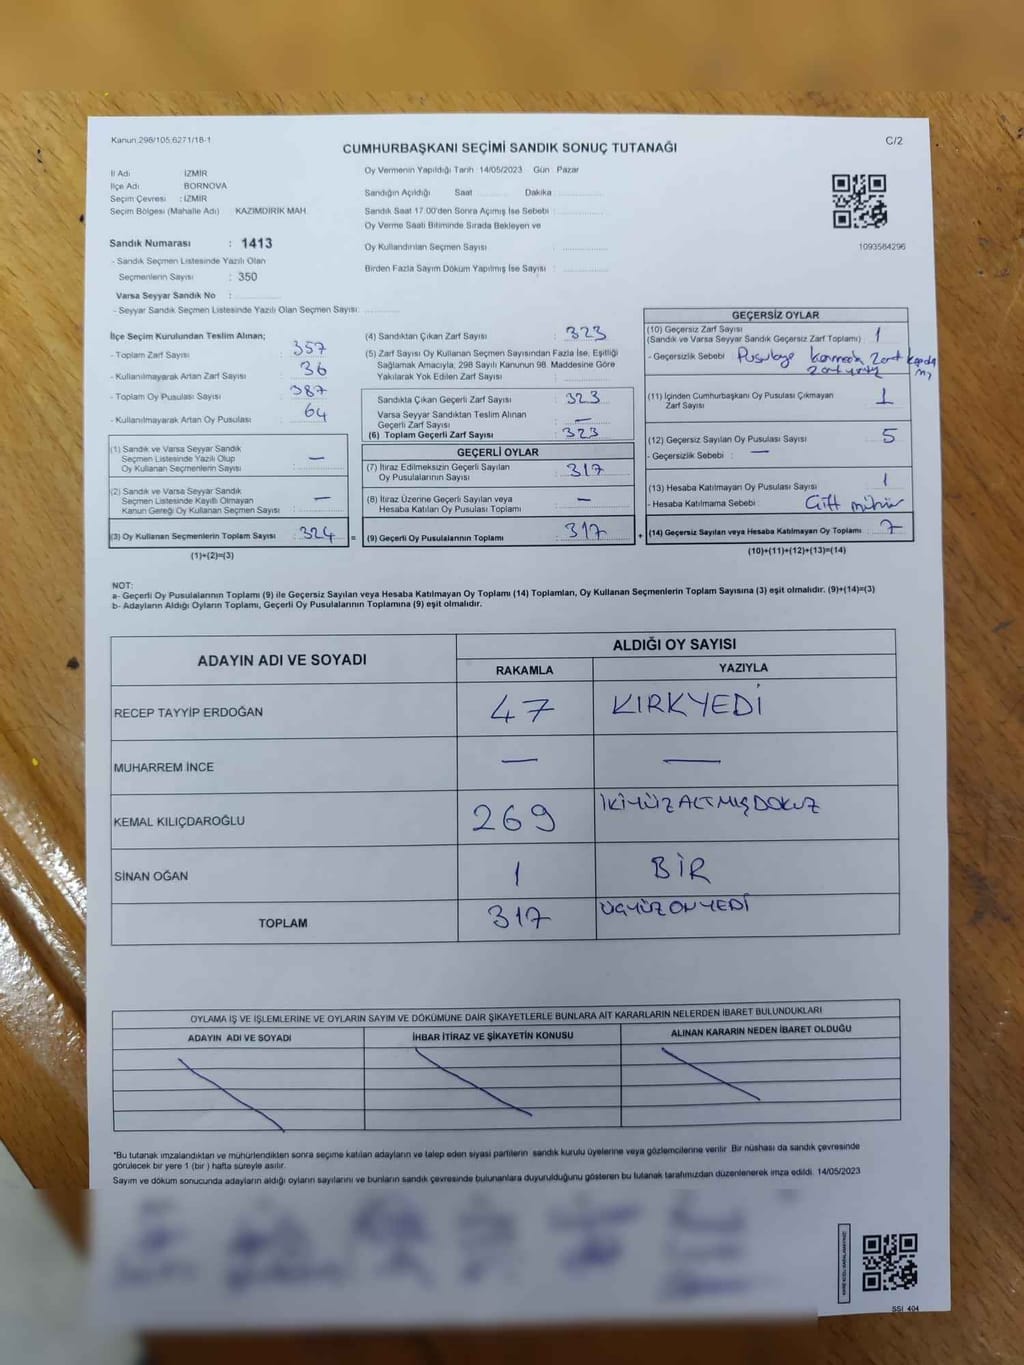 Kanun.298/105,6271/18-1
C/2
CUMHURBAŞKANI SEÇİMİ SANDIK SONUÇ TUTANAĞI
Oy Vermenin Yapıldığı Tarih 14/05/2023 Gün Pazar
İl Adı İZMİR
İlçe Adı BORNOVA
Seçim Çevresi : İZMİR
Seçim Bölgesi (Mahalle Adı) KAZIMDİRİK MAH.
Sandığın Açıldığı Saat Dakika
Sandık Saat 17.00'den Sonra Açımış İse Sebebi :
Oy Verme Saati Bitiminde Sırada Bekleyen ve
Oy Kullandırılan Seçmen Sayısı :
Birden Fazla Sayım Döküm Yapılmış İse Sayısı :
1093584296
Sandık Numarası : 1413
- Sandık Seçmen Listesinde Yazılı Olan
Seçmenlerin Sayısı : 350
Varsa Seyyar Sandık No :
- Seyyar Sandık Seçmen Listesinde Yazılı Olan Seçmen Sayısı:
İlçe Seçim Kurulundan Teslim Alınan;
- Toplam Zarf Sayısı : 357
- Kullanılmayarak Artan Zarf Sayısı : 36
- Toplam Oy Pusulası Sayısı : 387
- Kullanılmayarak Artan Oy Pusulası : 64
(1) Sandık ve Varsa Seyyar Sandık
Seçmen Listesinde Yazılı Olup
Oy Kullanan Seçmenlerin Sayısı : —
(2) Sandık ve Varsa Seyyar Sandık
Seçmen Listesinde Kayıtlı Olmayan
Kanun Gereği Oy Kullanan Seçmen Sayısı : —
(3) Oy Kullanan Seçmenlerin Toplam Sayısı : 324 =
(1)+(2)=(3)
(4) Sandıktan Çıkan Zarf Sayısı : 323
(5) Zarf Sayısı Oy Kullanan Seçmen Sayısından Fazla İse, Eşitliği
Sağlamak Amacıyla, 298 Sayılı Kanunun 98. Maddesine Göre
Yakılarak Yok Edilen Zarf Sayısı :
Sandıkta Çıkan Geçerli Zarf Sayısı : 323
Varsa Seyyar Sandıktan Teslim Alınan
Geçerli Zarf Sayısı : —
(6) Toplam Geçerli Zarf Sayısı : 323
GEÇERLİ OYLAR
(7) İtiraz Edilmeksizin Geçerli Sayılan
Oy Pusulasının Sayısı : 317
(8) İtiraz Üzerine Geçerli Sayılan veya
Hesaba Katılan Oy Pusulası Toplamı : —
(9) Geçerli Oy Pusulalarının Toplamı : 317 +
GEÇERSİZ OYLAR
(10) Geçersiz Zarf Sayısı
(Sandık ve Varsa Seyyar Sandık Geçersiz Zarf Toplamı) : 1
- Geçersizlik Sebebi : Pusulayı
(11) İçinden Cumhurbaşkanı Oy Pusulası Çıkmayan
Zarf Sayısı : 1
(12) Geçersiz Sayılan Oy Pusulası Sayısı : 5
- Geçersizlik Sebebi : —
(13) Hesaba Katılmayan Oy Pusulası Sayısı : 1
- Hesaba Katılmama Sebebi : Çift mühür
(14) Geçersiz Sayılan veya Hesaba Katılmayan Oy Toplamı : 7
(10)+(11)+(12)+(13)=(14)
NOT:
a- Geçerli Oy Pusulalarının Toplamı (9) ile Geçersiz Sayılan veya Hesaba Katılmayan Oy Toplamı (14) Toplamları, Oy Kullanan Seçmenlerin Toplam Sayısına (3) eşit olmalıdır. (9)+(14)=(3)
b- Adayların Aldığı Oyların Toplamı, Geçerli Oy Pusulalarının Toplamına (9) eşit olmalıdır.
ADAYIN ADI VE SOYADI
ALDIĞI OY SAYISI
RAKAMLA YAZIYLA
RECEP TAYYİP ERDOĞAN 47 KIRKYEDİ
MUHARREM İNCE — —
KEMAL KILIÇDAROĞLU 269 İKİYÜZALTMIŞDOKUZ
SİNAN OĞAN 1 BİR
TOPLAM 317 ÜÇYÜZONYEDİ
OYLAMA İŞ VE İŞLEMLERİNE VE OYLARIN SAYIM VE DÖKÜMÜNE DAİR ŞİKAYETLERLE BUNLARA AİT KARARLARIN NELERDEN İBARET BULUNDUKLARI
ADAYIN ADI VE SOYADI İHBAR İTİRAZ VE ŞİKAYETİN KONUSU ALINAN KARARIN NEDEN İBARET OLDUĞU
*Bu tutanak imzalandıktan ve mühürlendikten sonra seçime katılan adayların ve talep eden siyasi partilerin sandık kurulu üyelerine veya gözlemcilerine verilir. Bir nüshası da sandık çevresinde
görülecek bir yere 1 (bir) hafta süreyle asılır.
Sayım ve döküm sonucunda adayların aldığı oyların sayılarını ve bunların sandık çevresinde bulunanlara duyurulduğunu gösteren bu tutanak tarafımızdan düzenlenerek imza edildi. 14/05/2023
SSİ 404